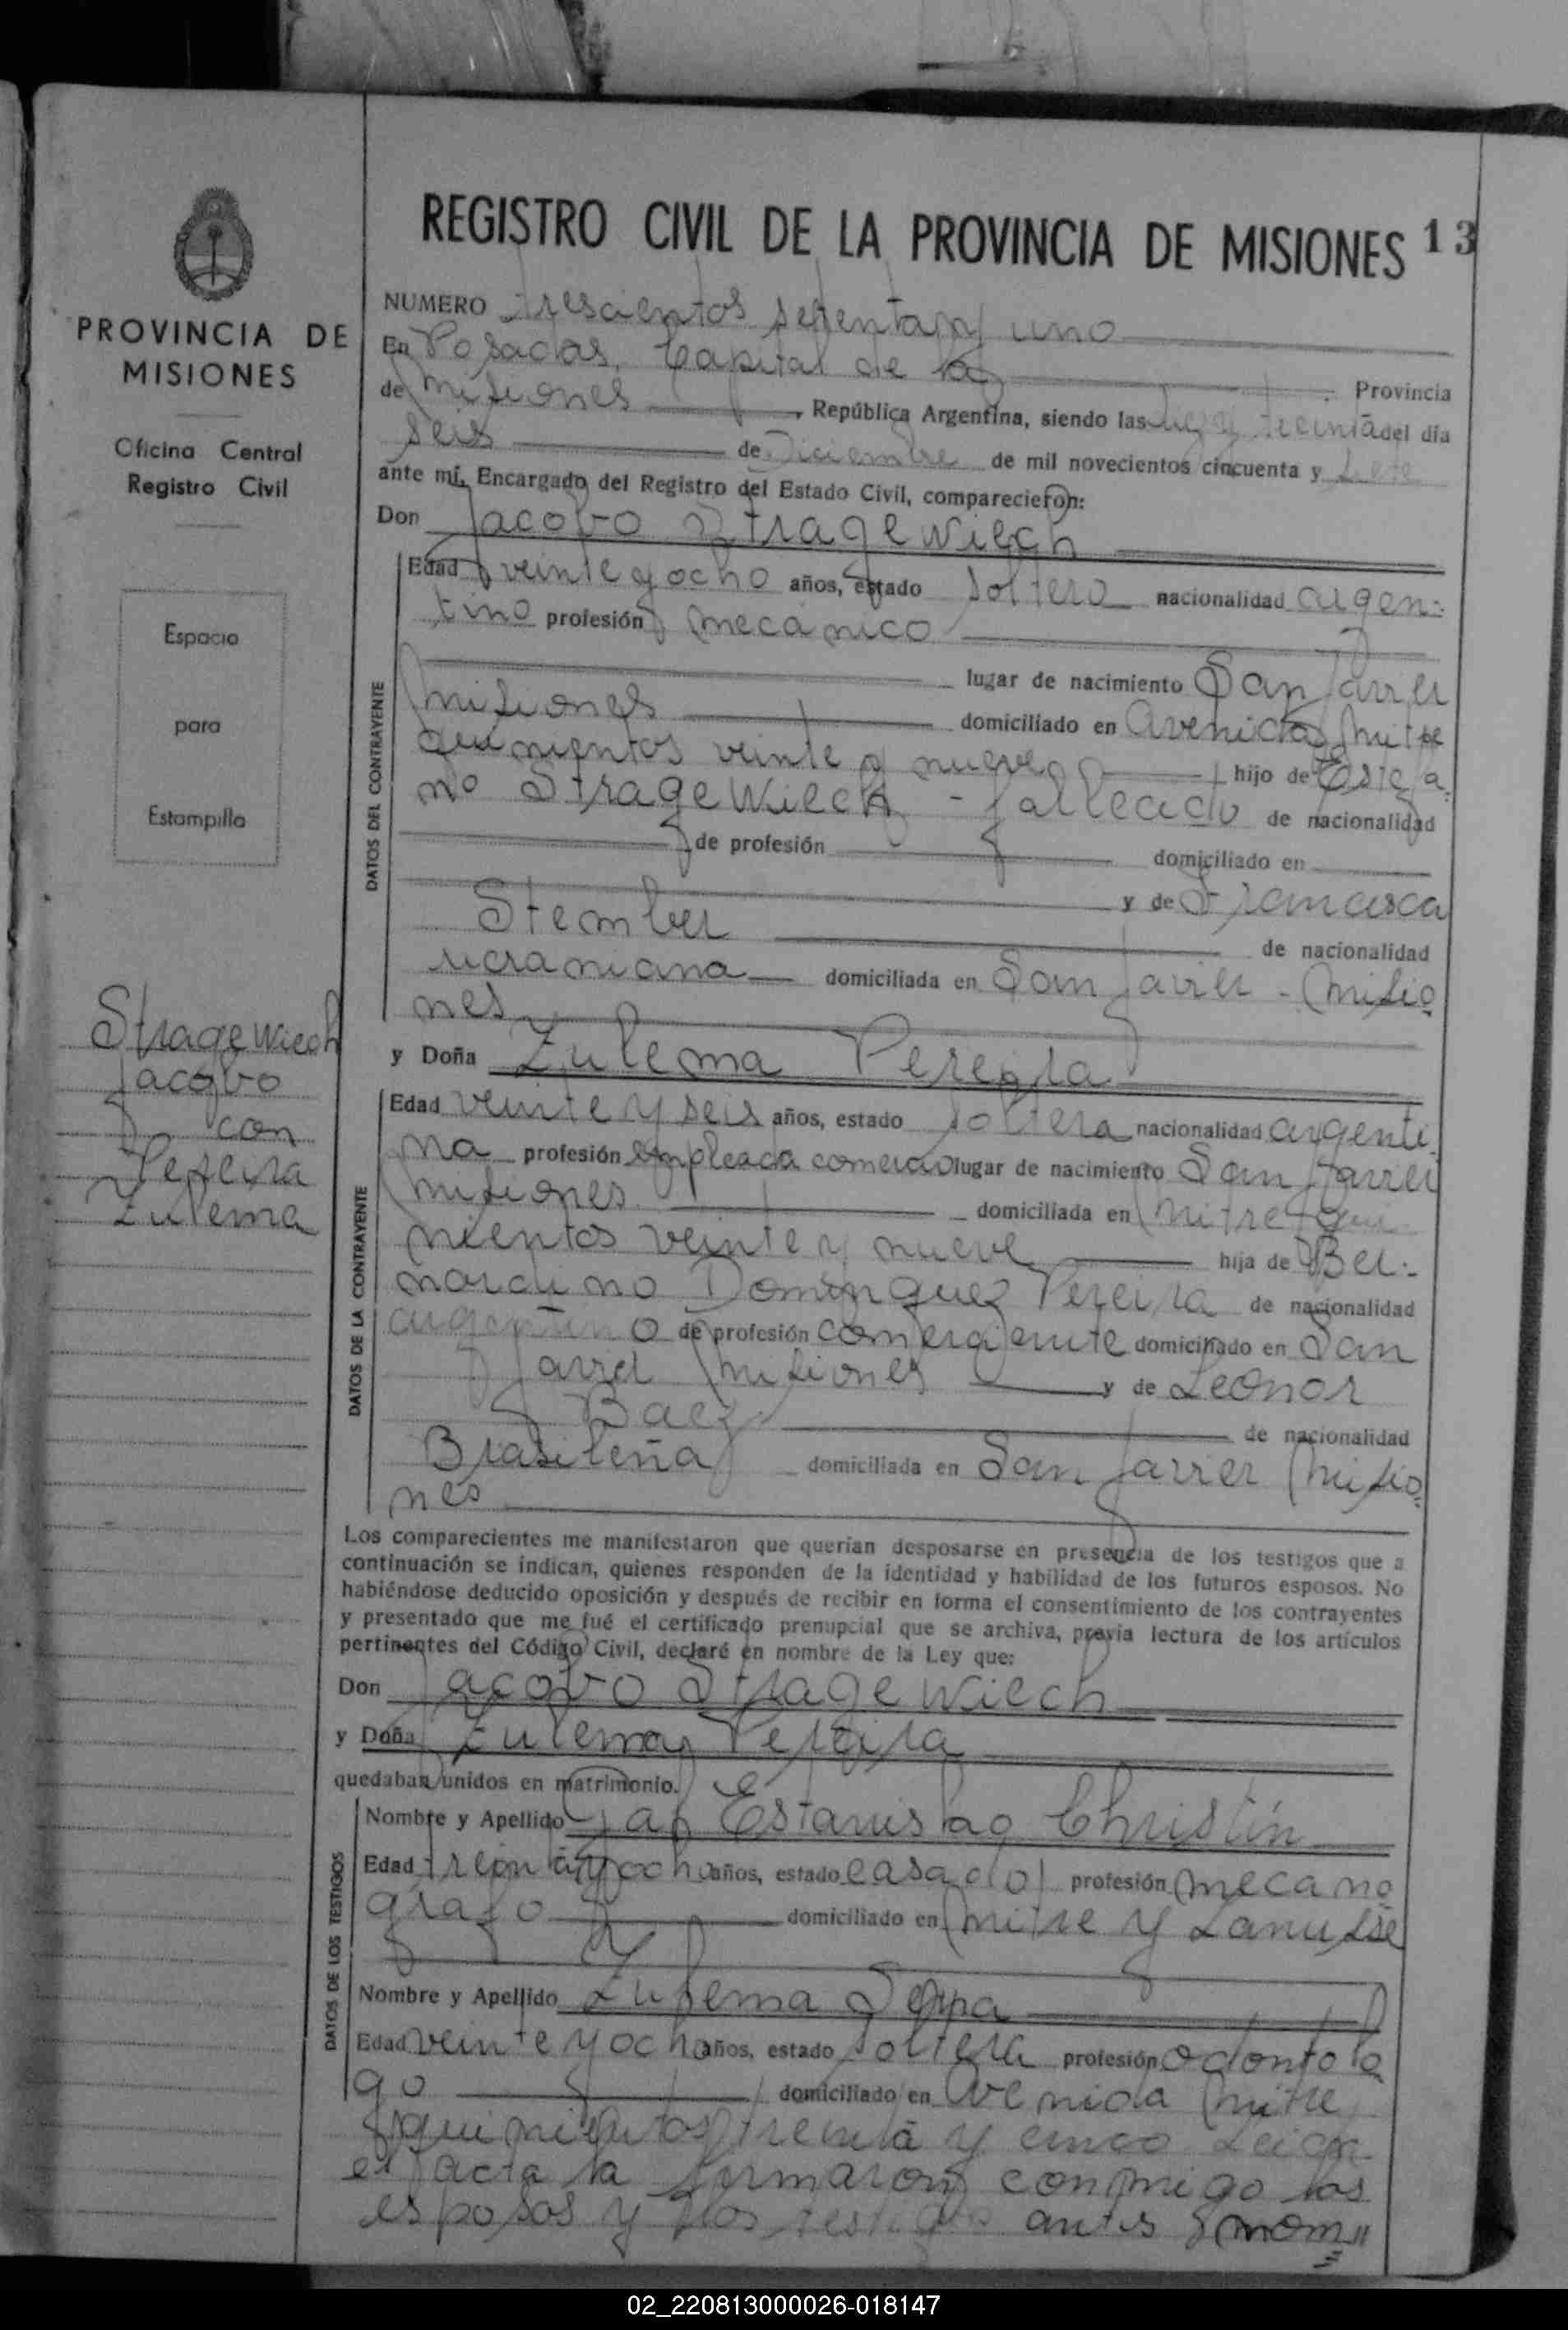 REGISTRO CIVIL DE LA PROVINCIA DE MISIONES 13
PROVINCIA DE
MISIONES
Oficina Central
Registro Civil
Espacio
para
Estampilla
Stragewiech
Jacobo
con
Pereira
Zulema
NUMERO trescientos setenta y uno
En Posadas, Capital de la Provincia
de Misiones, República Argentina, siendo las diez y treinta del día
seis de Diciembre de mil novecientos cincuenta y siete
ante mí, Encargado del Registro del Estado Civil, comparecieron:
Don Jacobo Stragewiech
DATOS DEL CONTRAYENTE
Edad veinte y ocho años, estado soltero nacionalidad argen-
tino profesión mecánico
lugar de nacimiento San Javier
Misiones domiciliado en Avenida Mitre
quinientos veinte y nueve hijo de Estefa-
no Stragewiech - fallecido de nacionalidad
de profesión domiciliado en
y de Francisca
Stember de nacionalidad
ucraniana domiciliada en San Javier - Misio-
nes
y Doña Zulema Pereira
DATOS DE LA CONTRAYENTE
Edad veinte y seis años, estado soltera nacionalidad argenti-
na profesión empleada comercio lugar de nacimiento San Javier
Misiones domiciliada en Mitre qui-
nientos veinte y nueve hija de Ber-
nardino Dominguez Pereira de nacionalidad
argentino de profesión comerciante domiciliado en San
Javier Misiones y de Leonor
Baez de nacionalidad
Brasileña domiciliada en San Javier Misio-
nes
Los comparecientes me manifestaron que querían desposarse en presencia de los testigos que a
continuación se indican, quienes responden de la identidad y habilidad de los futuros esposos. No
habiéndose deducido oposición y después de recibir en forma el consentimiento de los contrayentes
y presentado que me fué el certificado prenupcial que se archiva, previa lectura de los artículos
pertinentes del Código Civil, declaré en nombre de la Ley que:
Don Jacobo Stragewiech
y Doña Zulema Pereira
quedaban unidos en matrimonio.
DATOS DE LOS TESTIGOS
Nombre y Apellido Estanislao Christín
Edad treinta y ocho años, estado casado profesión mecanó-
grafo domiciliado en Mitre y Lanusse
Nombre y Apellido Zulema Serpa
Edad veinte y ocho años, estado soltera profesión odontólo-
go domiciliado en Avenida Mitre
quinientos treinta y cinco Leida
el acta la firmaron conmigo los
esposos y los testigos antes nom"
02_220813000026-018147